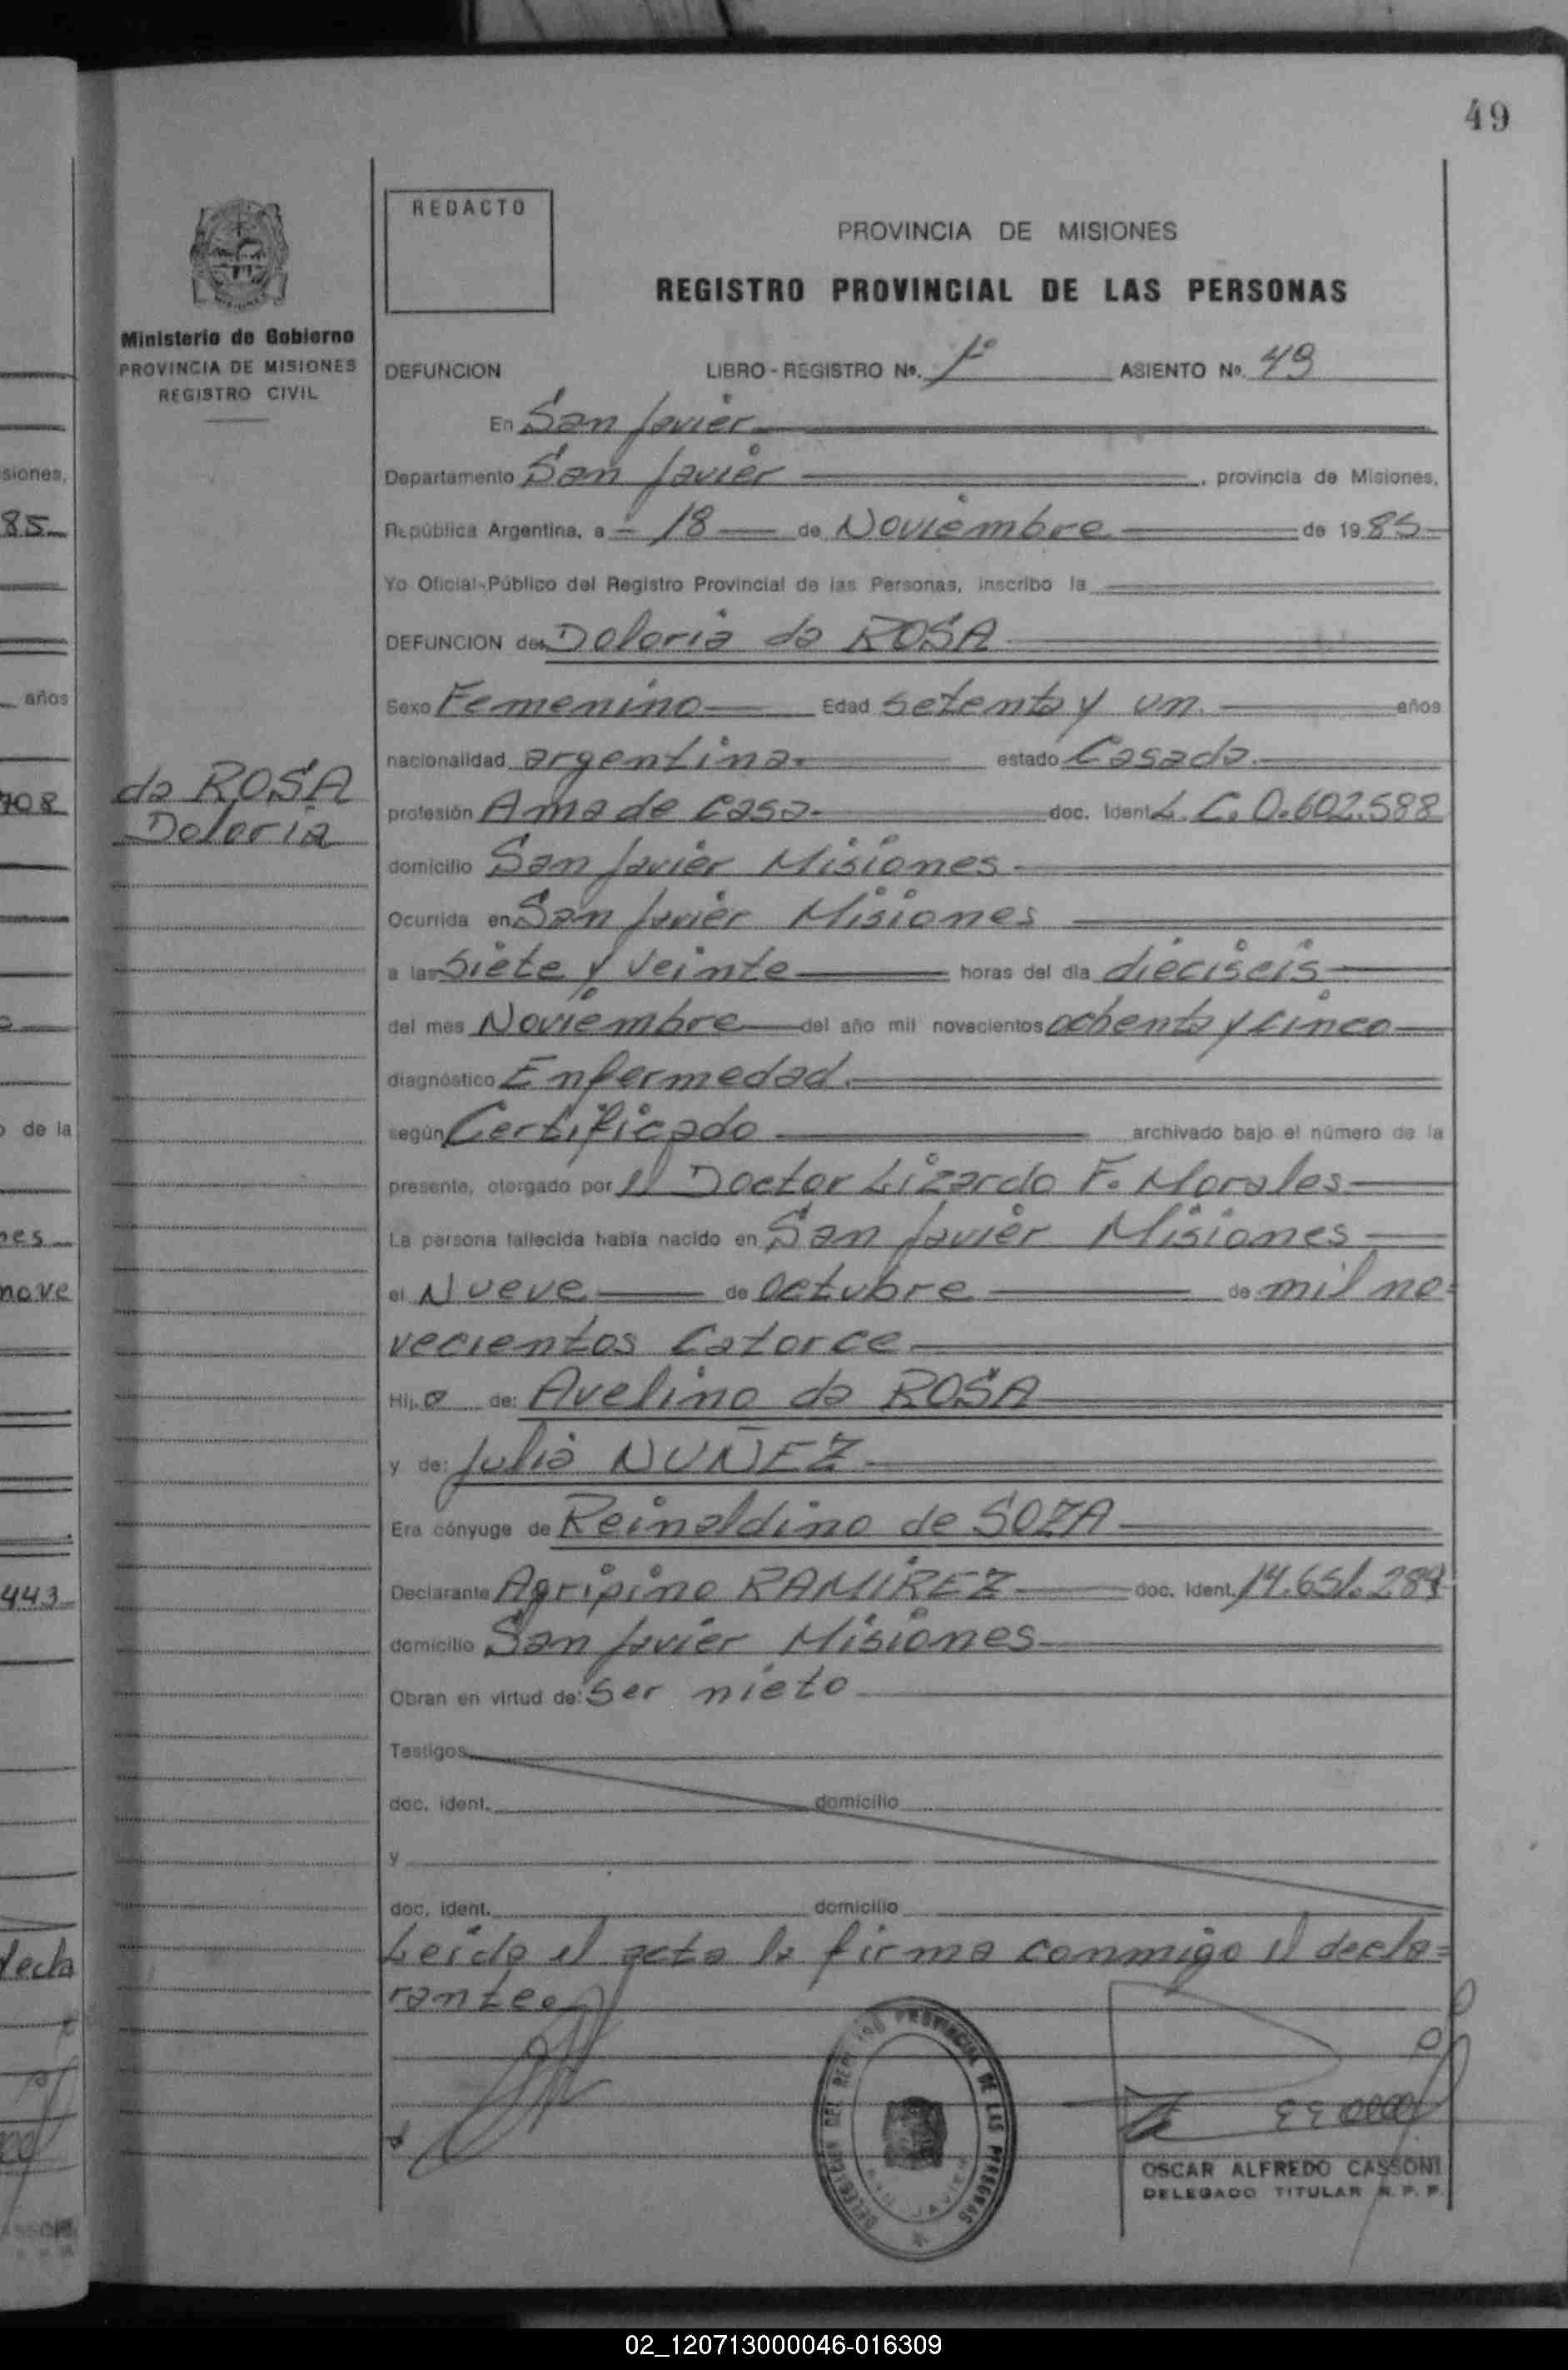 49
REDACTO
PROVINCIA DE MISIONES
REGISTRO PROVINCIAL DE LAS PERSONAS
Ministerio de Gobierno
PROVINCIA DE MISIONES
REGISTRO CIVIL
DEFUNCION LIBRO - REGISTRO Nº. 1º ASIENTO Nº. 49
En San Javier
Departamento San Javier , provincia de Misiones,
República Argentina, a - 18 - de Noviembre de 1985
Yo Oficial Público del Registro Provincial de las Personas, inscribo la
DEFUNCION de: Doloria da ROSA
Sexo Femenino Edad setenta y un años
nacionalidad argentina. estado Casada
da ROSA
Doloria
profesión Ama de casa. doc. Ident. L.C. 0.602.588
domicilio San Javier Misiones
Ocurrida en San Javier Misiones
a las Siete y veinte horas del día dieciseis
del mes Noviembre del año mil novecientos ochenta y cinco
diagnóstico Enfermedad.
según Certificado archivado bajo el número de la
presente, otorgado por el Doctor Lizardo F. Morales
La persona fallecida había nacido en San Javier Misiones
el Nueve de octubre de mil no=
vecientos catorce
Hij a de: Avelino da ROSA
y de: Julia NUÑEZ
Era cónyuge de Reinaldino de SOZA
Declarante Agripino RAMIREZ doc. Ident. 14.651.289
domicilio San Javier Misiones
Obran en virtud de: Ser nieto
Testigos
doc. ident. domicilio
y
doc. ident. domicilio
Leida el acta la firma conmigo el decla=
rante.
DELEGACION DEL REGISTRO PROVINCIAL DE LAS PERSONAS
SAN JAVIER
OSCAR ALFREDO CASSONI
DELEGADO TITULAR R. P. P.
siones,
85
años
708
de la
nes
nove
443
decla
02_120713000046-016309